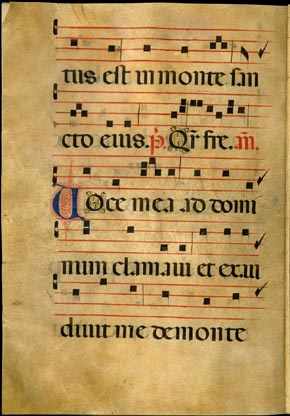 tus est in monte san
cto eius. p̄. Qr̄ fre. an̄.
Voce mea ad domi
num clamaui et exau
diuit me de monte